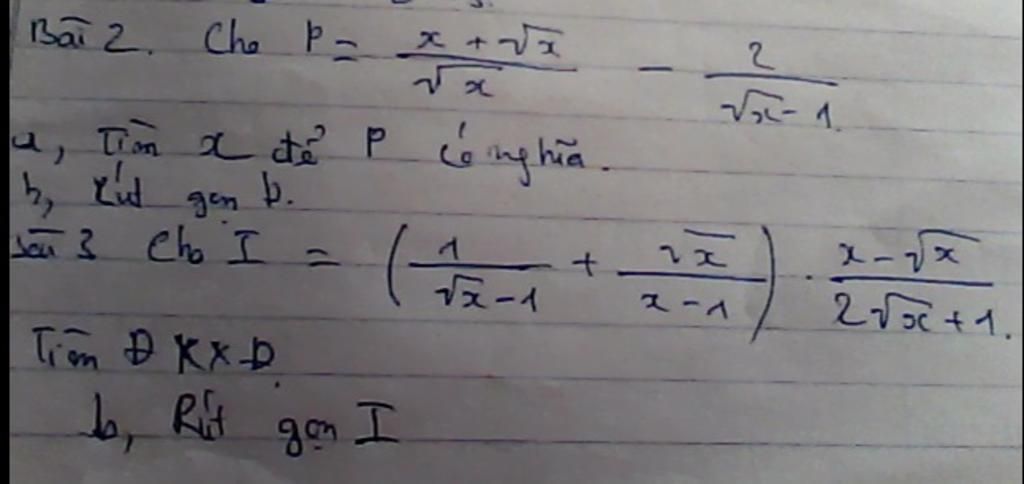 Bài 2. Cho P = \frac{x + \sqrt{x}}{\sqrt{x}} - \frac{2}{\sqrt{x} - 1}.
a, Tìm x để P có nghĩa.
b, Rút gọn P.
Bài 3 Cho I = \left( \frac{1}{\sqrt{x} - 1} + \frac{\sqrt{x}}{x - 1} \right) \cdot \frac{x - \sqrt{x}}{2\sqrt{x} + 1}.
Tìm ĐKXĐ.
b, Rút gọn I